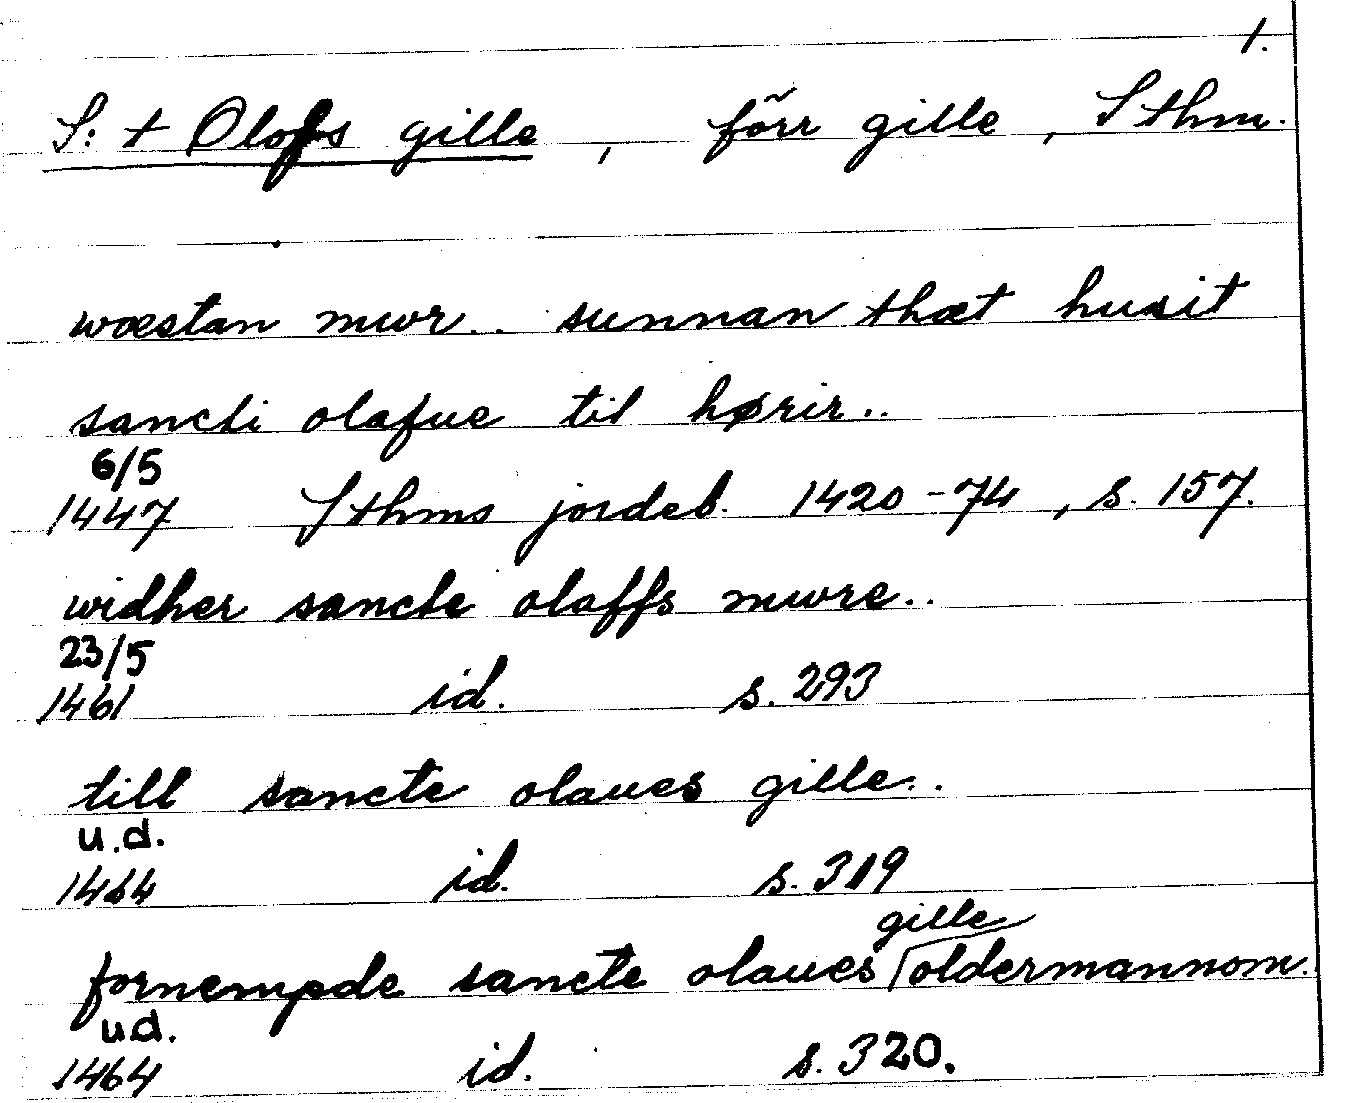 1.
S:t Olofs gille, förr gille, Sthm.
wæstan mwr.. sunnan thæt husit
sancti olafue til hørir..
6/5
1447 Sthms jordeb. 1420-74, s. 157.
widher sancte olaffs mwre..
23/5
1461 id. s. 293
till sancte olaues gille..
u.d.
1464 id. s. 319
gille
fornempde sancte olaues oldermannom.
u.d.
1464 id. s. 320.